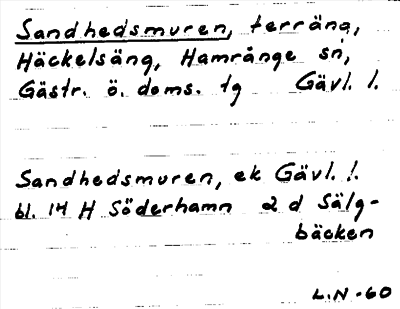 Sandhedsmuren, terräng,
Häckelsäng, Hamrånge sn,
Gästr. ö. doms. tg Gävl. l.
Sandhedsmuren, ek Gävl. l.
bl. 14 H Söderhamn 2 d Sälg-
bäcken
L.N -60